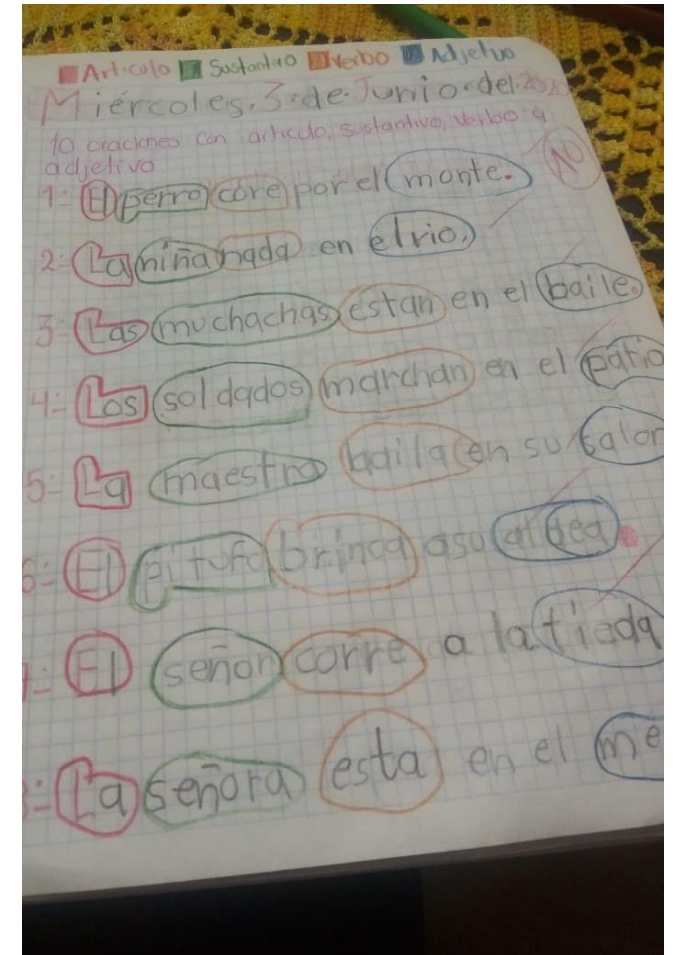 Articulo Sustantivo Verbo Adjetivo
Miércoles.3.de.Junio.del.2020
10 oraciones con articulo, sustantivo, verbo y
adjetivo
1= El perro core por el monte.
NO
2= La niña nada en el rio.
3= Las muchachas estan en el baile.
4= Los soldados marchan en el patio
5= La maestra baila en su salon
6= El pitufo brinca asu aldea.
El señor corre a la tieda
La señora esta en el me